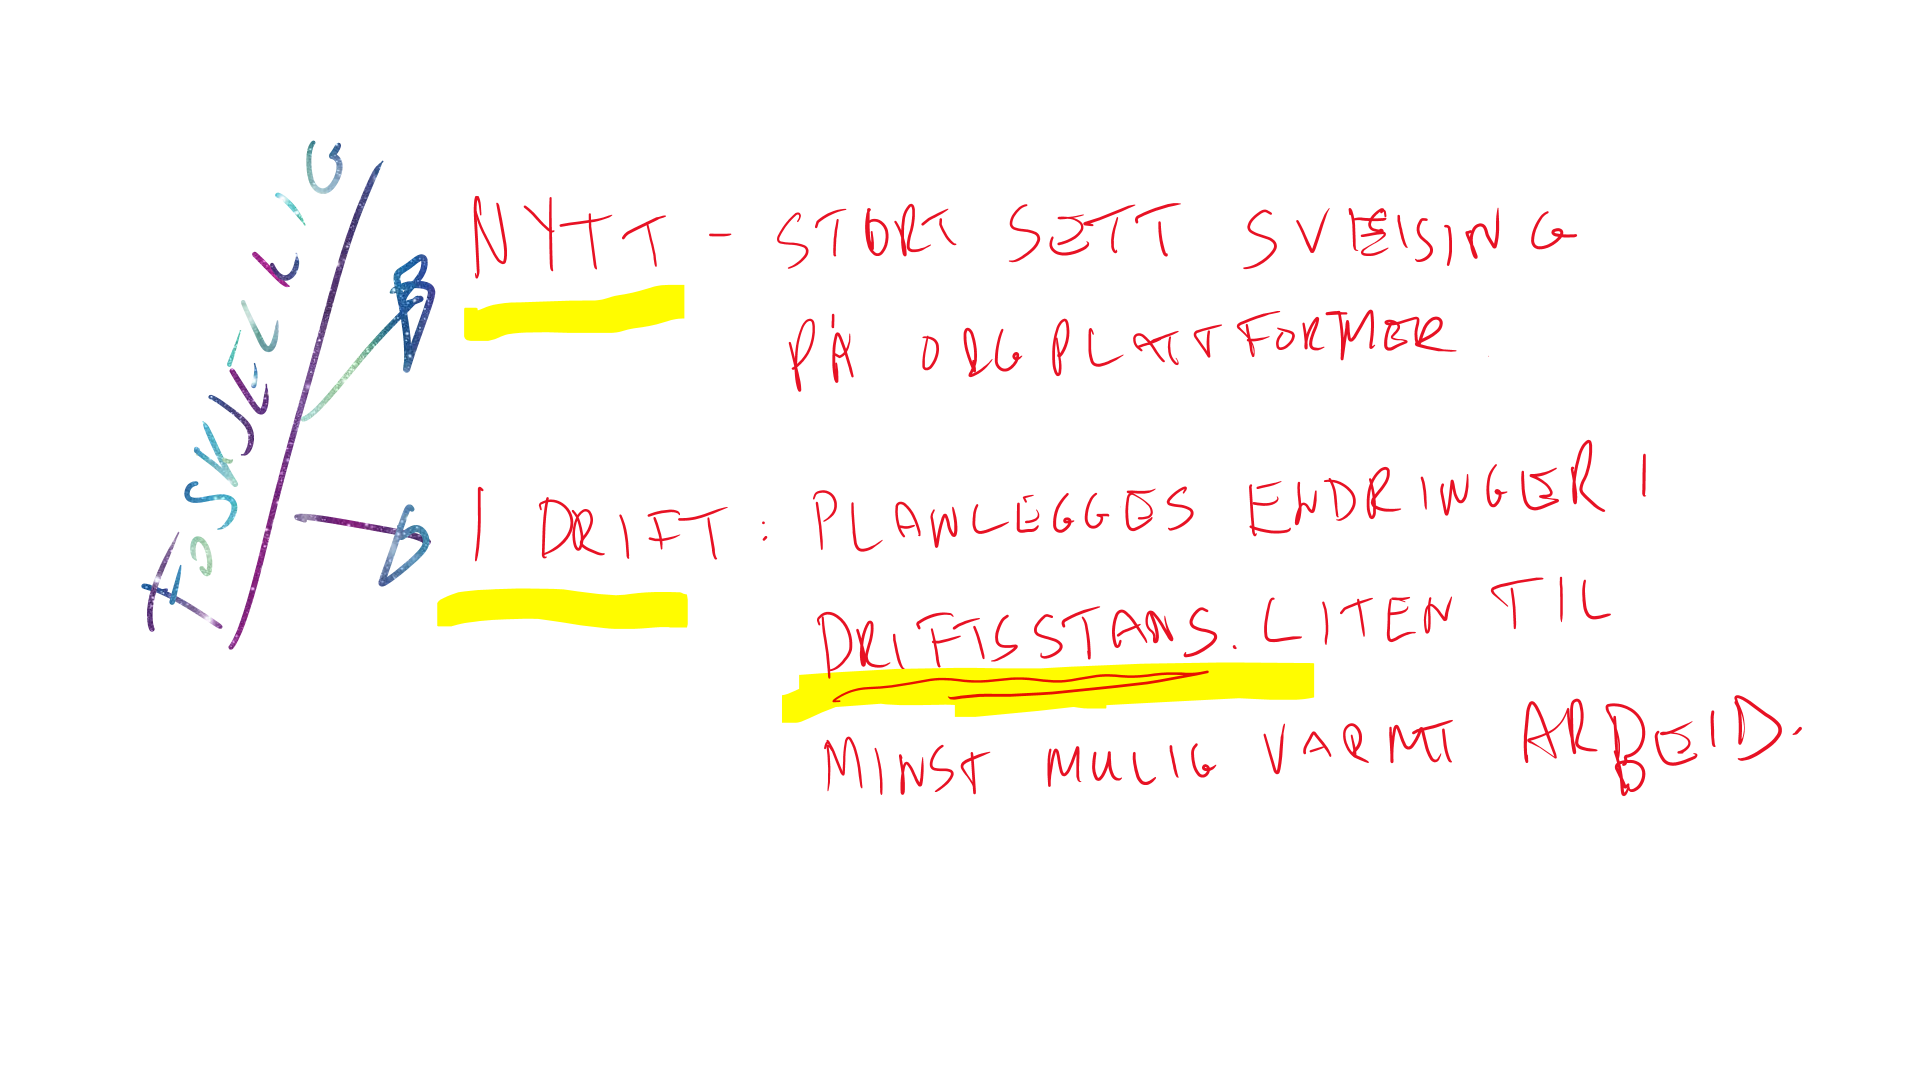 FOSKJELLIG
NYTT - STORT SETT SVEISING
PÅ ORGPLATTFORMER
I DRIFT: PLANLEGGES ENDRINGER I
DRIFTSSTANS. LITEN TIL
MINST MULIG VARMT ARBEID.